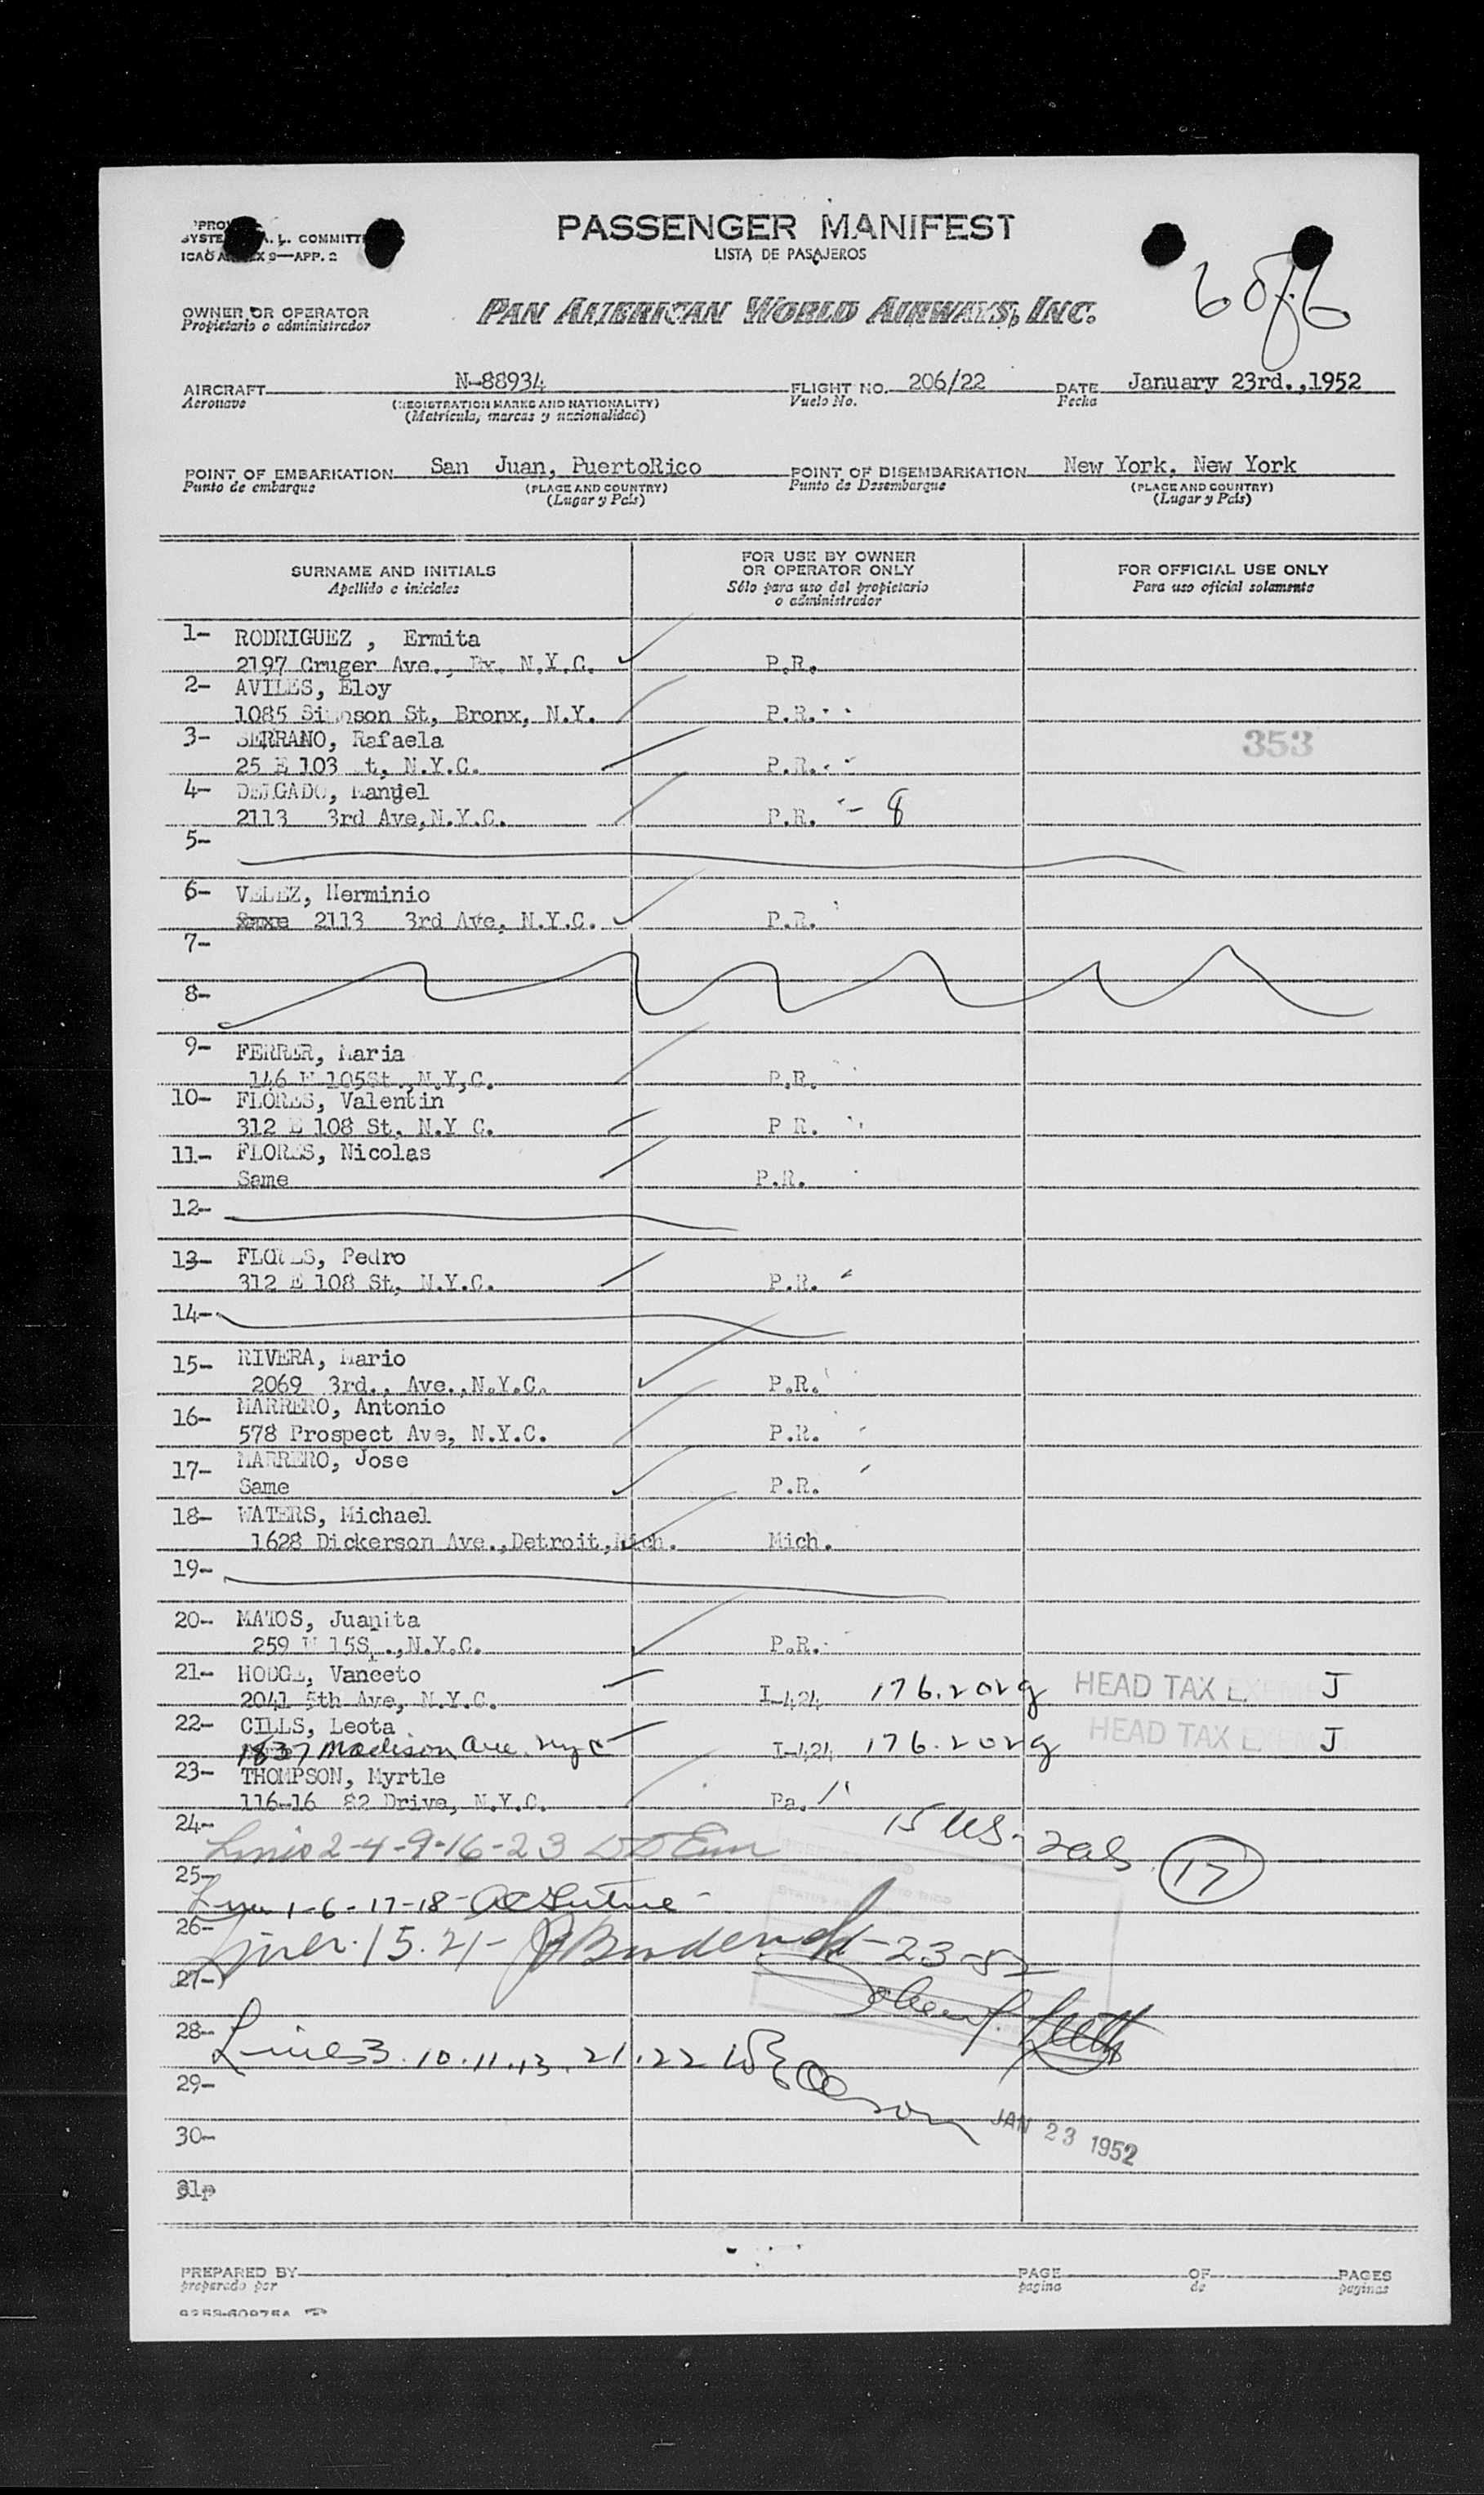 PASSENGER MANIFEST
LISTA DE PASAJEROS
COMMITT
ICAO 9—APP. 2
6 of 6
OWNER OR OPERATOR
Propietario o administrador
PAN AMERICAN WORLD AIRWAYS, INC.
AIRCRAFT N-88934 FLIGHT NO. 206/22 DATE January 23rd.,1952
Aeronave (REGISTRATION MARKS AND NATIONALITY) Vuelo No. Fecha
(Matricula, marcas y nacionalidad)
POINT OF EMBARKATION San Juan, PuertoRico POINT OF DISEMBARKATION New York. New York
Punto de embarque (PLACE AND COUNTRY) Punto de Desembarque (PLACE AND COUNTRY)
(Lugar y País) (Lugar y País)
SURNAME AND INITIALS FOR USE BY OWNER OR OPERATOR ONLY FOR OFFICIAL USE ONLY
Apellido e iniciales Sólo para uso del propietario o administrador Para uso oficial solamente
1- RODRIGUEZ , Ermita
2197 Cruger Ave., Bx. N.Y.C. P.R.
2- AVILES, Eloy
1085 Simpson St, Bronx, N.Y. P.R.
3- SERRANO, Rafaela 353
25 E 103 St, N.Y.C. P.R.
4- DELGADO, Manuel
2113 3rd Ave,N.Y.C. P.R. - 8
5-
6- VELEZ, Herminio
2113 3rd Ave, N.Y.C. P.R.
7-
8-
9- FERRER, Maria
146 E 105St.,N.Y,C. P.R.
10- FLORES, Valentin
312 E 108 St, N.Y C. P R.
11- FLORES, Nicolas
Same P.R.
12-
13- FLORES, Pedro
312 E 108 St, N.Y.C. P.R.
14-
15- RIVERA, Mario
2069 3rd., Ave.,N.Y.C. P.R.
16- MARRERO, Antonio
578 Prospect Ave, N.Y.C. P.R.
17- MARRERO, Jose
Same P.R.
18- WATERS, Michael
1628 Dickerson Ave.,Detroit,Mich. Mich.
19-
20- MATOS, Juanita
259 15S .,N.Y.C. P.R.
21- HODGE, Vanceto
2041 5th Ave, N.Y.C. I-424 176.202g HEAD TAX EXEMPT J
22- CILLS, Leota
1837 Madison Ave. nyc I-424 176.202g HEAD TAX EXEMPT J
23- THOMPSON, Myrtle
116-16 82 Drive, N.Y.C. Pa.
24- 15 US - 2als 17
Lines 2-4-9-16-23
25-
Line 1-6-17-18-
26-
Lines. 15. 21- 1-23-52
27-
28-
Lines 3.10.11.13.21.22
29-
30- JAN 23 1952
31p
PREPARED BY PAGE OF PAGES
preparado por pagina de paginas